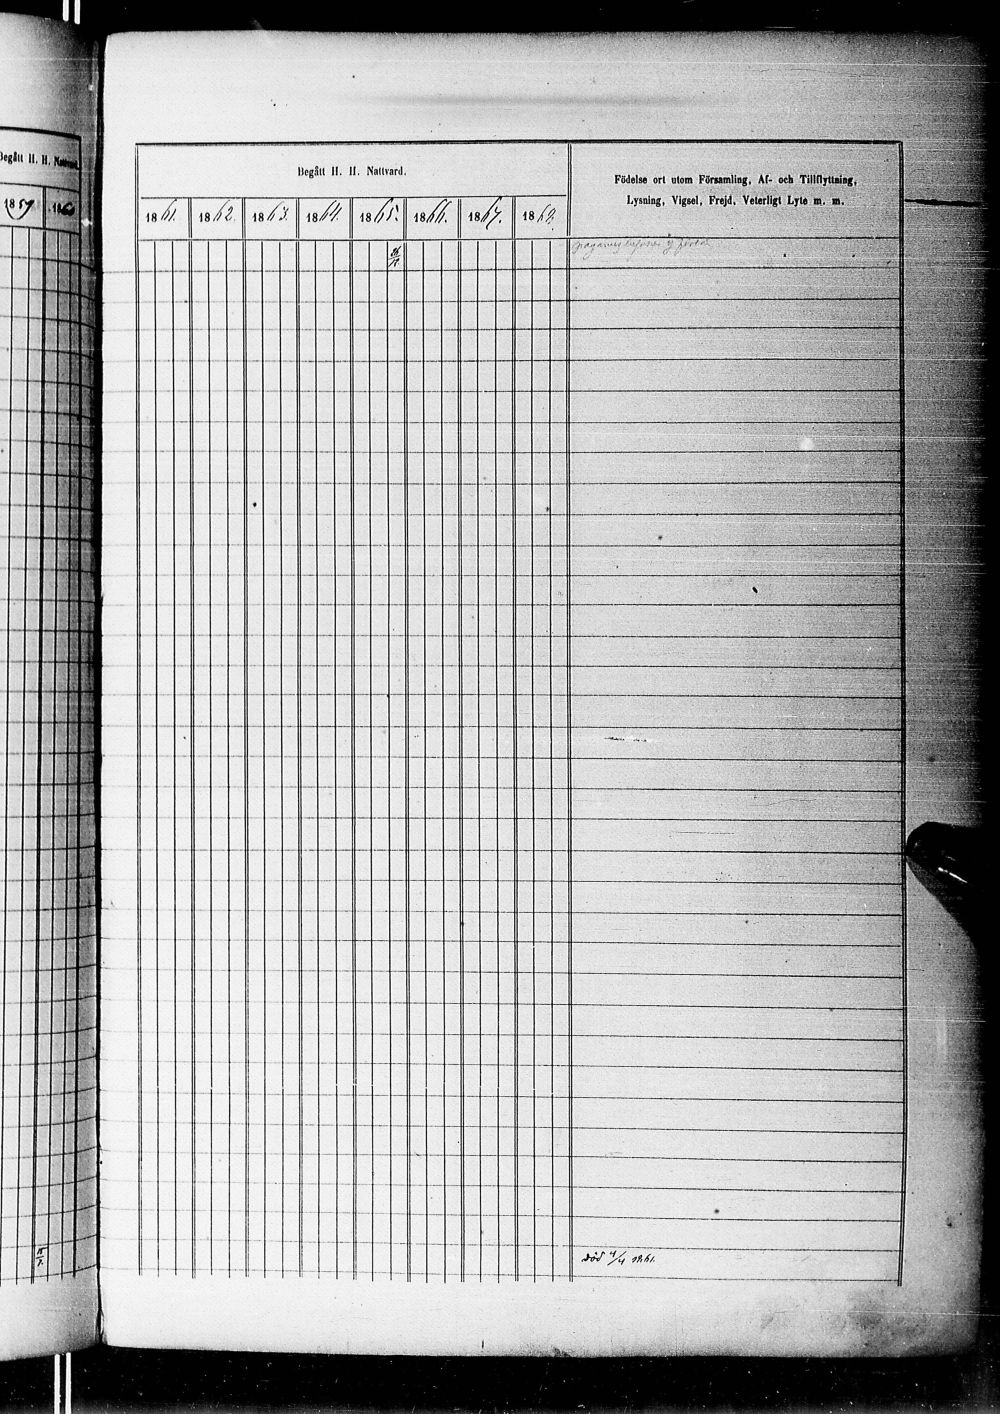 Begått H. H. Nattvard.
1859 1860
Begått H. H. Nattvard.
Födelse ort utom Församling, Af- och Tillflyttning,
Lysning, Vigsel, Frejd, Veterligt Lyte m. m.
1861. 1862. 1863. 1864. 1865. 1866. 1867. 1868.
död 4/4 1861.